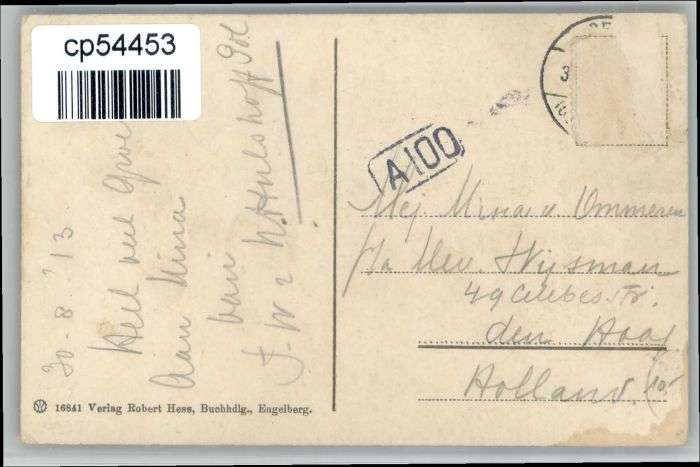 cp54453
30.8.'13
Heel veel
Aan Mina
van
J. W & N. Hulshoff Pol
A100
Mej. Mina v Ommeren
p/a Mev. Wijsman
49 Celebesstr.
den Haag
Holland.
16841 Verlag Robert Hess, Buchhdlg., Engelberg.